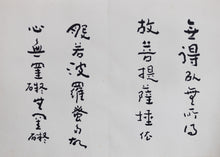 無得以無所得
故菩提薩埵依
般若波羅蜜多故
心無罣礙無罣礙